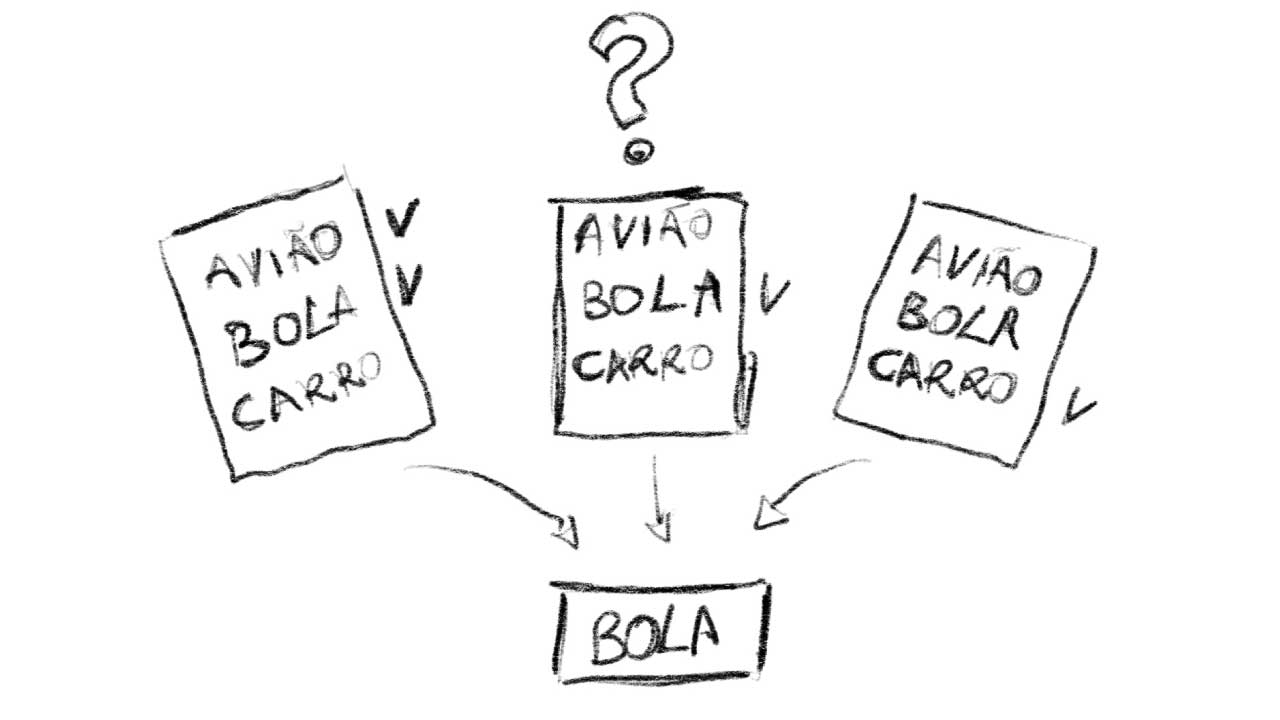 ?
AVIÃO
BOLA
CARRO
AVIÃO
BOLA
CARRO
AVIÃO
BOLA
CARRO
BOLA